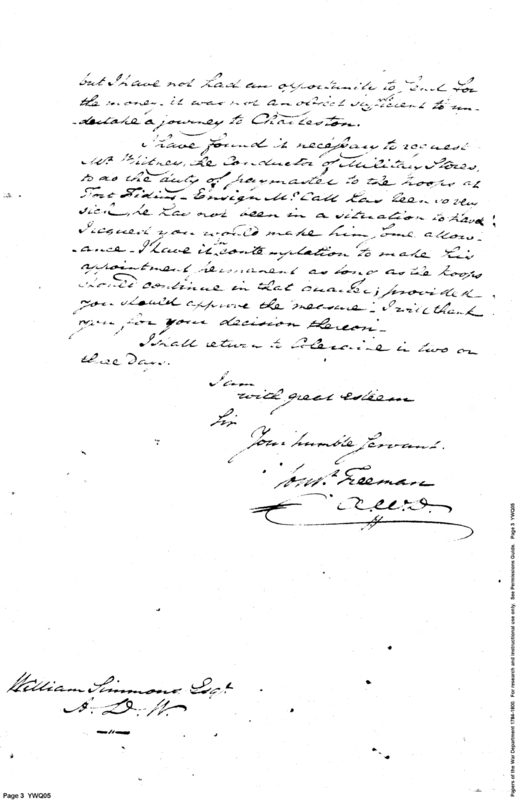 but I have not had an opportunity to send for
the money. it was not an object sufficient to un-
dertake a journey to Charleston.
I have found it necessary to request
Mr. Whitney, the Conductor of Military Stores,
to do the duty of paymaster to the troops at
Fort Fidius - Ensign McCall has been so very
sick, he has not been in a situation to
I request you would make him some allow-
ance - I have it in contemplation to make his
appointment permanent as long as the troops
should continue in that quarter; provided
you should approve the measure - I will thank
you for your decision thereon -
I shall return to Coleraine in two or
three Days.
I am
with great esteem
Sir
Your humble Servant.
Const. Freeman
A.W.D.
William Simmons Esqr.
A. D. W.
Page 3 YWQ05
Papers of the War Department 1784-1800. For research and instructional use only. See Permissions Guide. Page 3 YWQ05